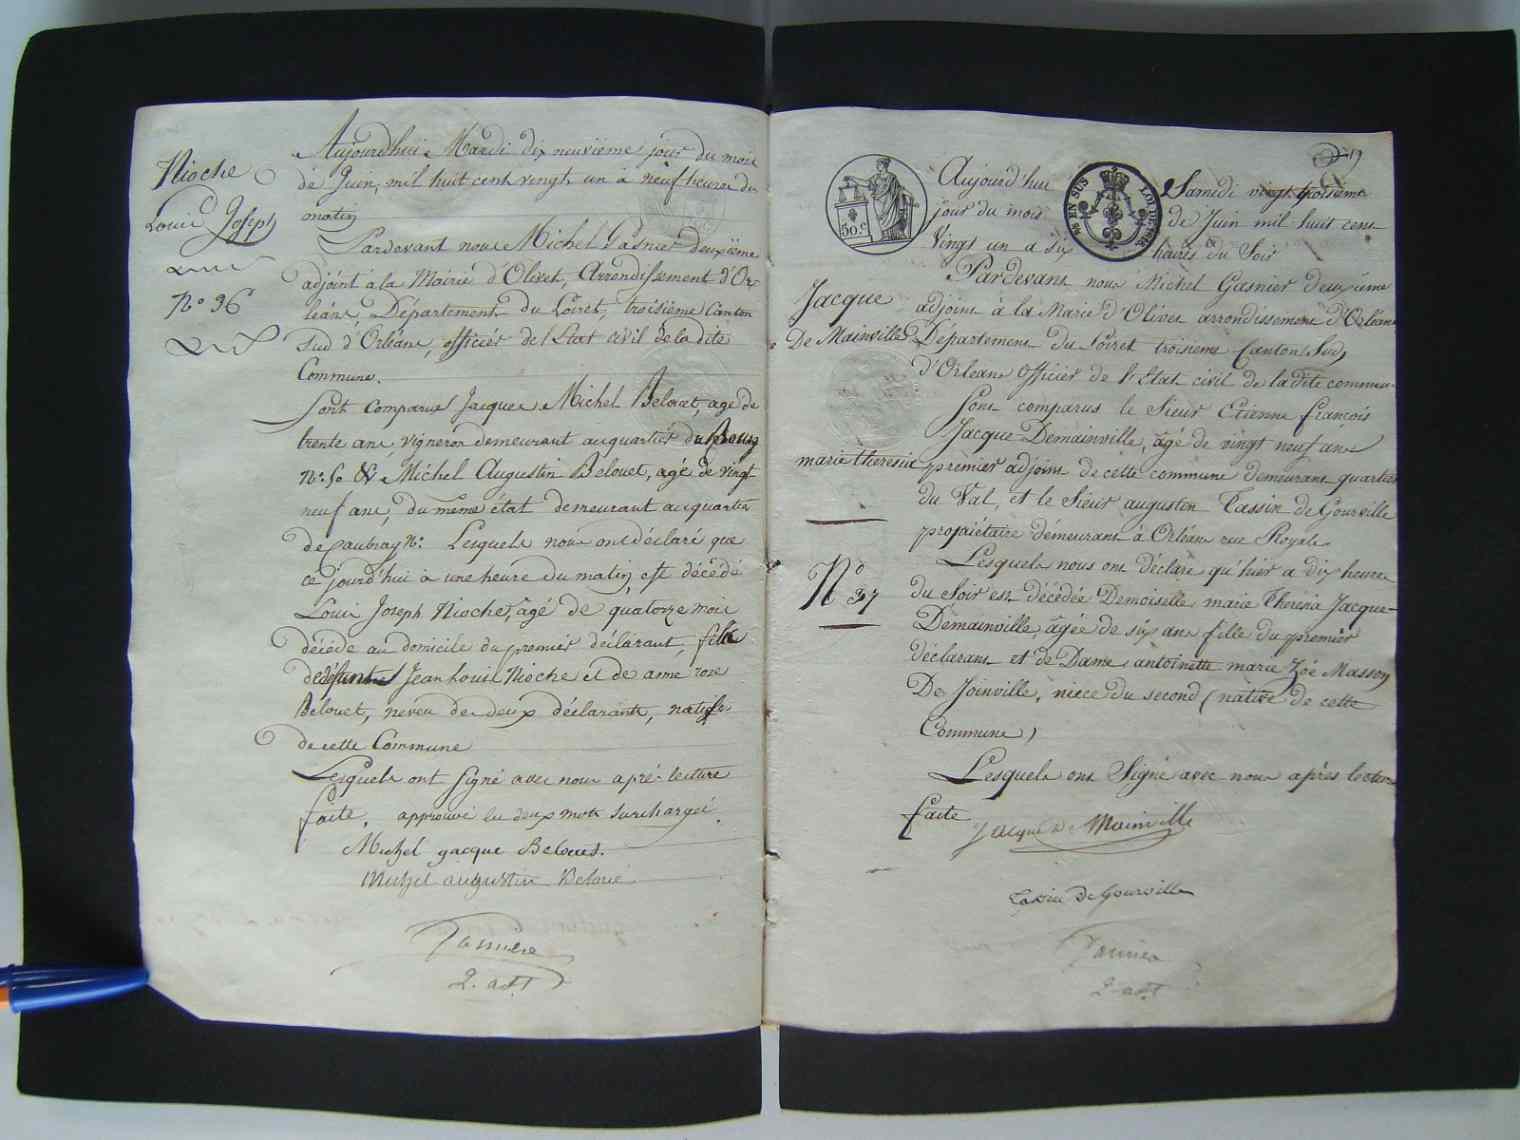 Nioche
Louis Joseph
N° 36
Aujourd'hui Mardi dix neuvième jour du mois
de Juin, mil huit cent vingt un à neuf heures du
matin
Pardevant nous Michel Gasnier deuxième
adjoint à la Mairie d'Olivet, Arrondissement d'Or-
léans Département du Loiret, troisième Canton
Sud d'Orléans, officier de l'Etat civil de la dite
Commune.
Sont comparus Jacques Michel Belouet, age de
trente ans, vigneron demeurant au quartier du Bourg
N° 50 & Michel Augustin Belouet, agé de vingt
neuf ans, du même état demeurant au quartier
de N° Lesquels nous ont déclaré que
ce jourd'hui à une heure du matin, est décédé
Louis Joseph Nioche, âgé de quatorze mois
décédé au domicile du premier déclarant, fils
de Jean Louis Nioche et de anne rose
Bélouet, neveu de deux déclarants, natif
de cette Commune
Lesquels ont signé avec nous après lecture
faite. approuvé les deux mots surchargés.
Michel jacque Beloues.
Michel augustin Beloue
2. adjt
19
50 c
EN SUS
Aujourd'hui Samedi vingt troisieme
jour du mois de Juin mil huit cent
Vingt un a six heures du Soir
Jacque
De Mainville
marie theresia
N° 37
Pardevant nous Michel Gasnier deuxieme
adjoint à la Mairie d'Olivet arrondissement d'Orleans
Département du Loiret troisieme Canton Sud
d'Orleans Officier de l'Etat civil de la dite commune
Sont comparus le Sieur Etienne françois
Jacque Demainville, âgé de vingt neuf ans
premier adjoint de cette commune demeurant quartier
du Val, et le Sieur auguston Tassin de Gourville
propriétaire demeurant à Orléans rue Royale
Lesquels nous ont déclare qu'hier a dix heures
du Soir est décédée Demoiselle marie Theresia Jacque-
Demainville, âgée de six ans fille du premier
déclarant et de Dame antoinette marie Zoé Masson
De Joinville, niece du second (native de cette
Commune)
Lesquels ont Signé avec nous après lecture
faite
Jacque De Mainville
Tassin de Gourville
2. adjt